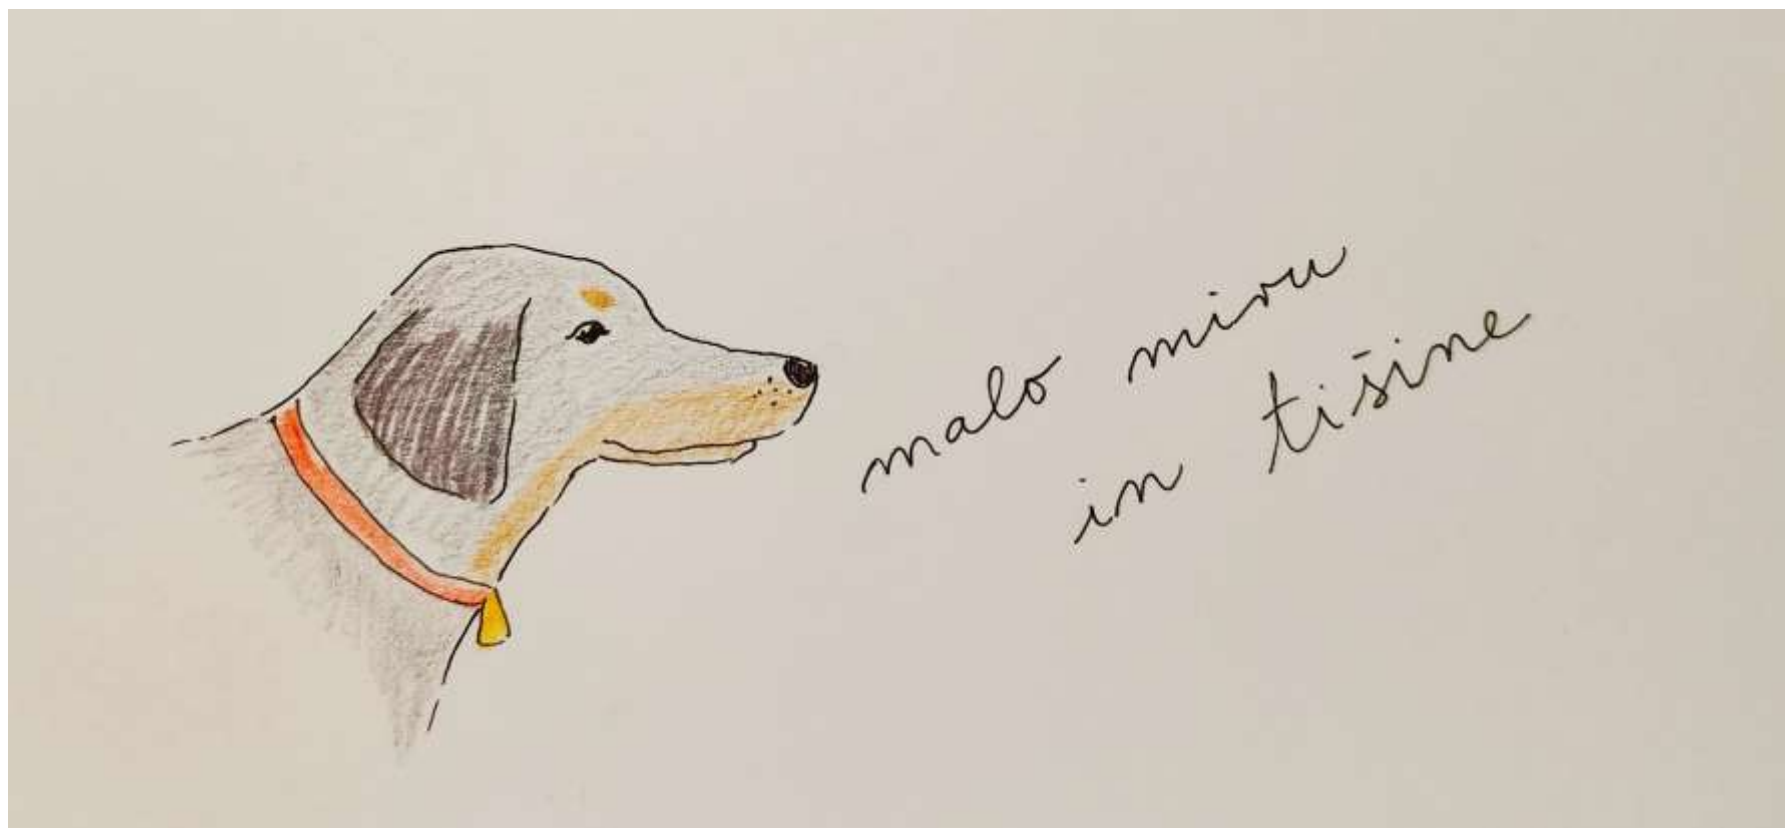 malo miru
in tišine